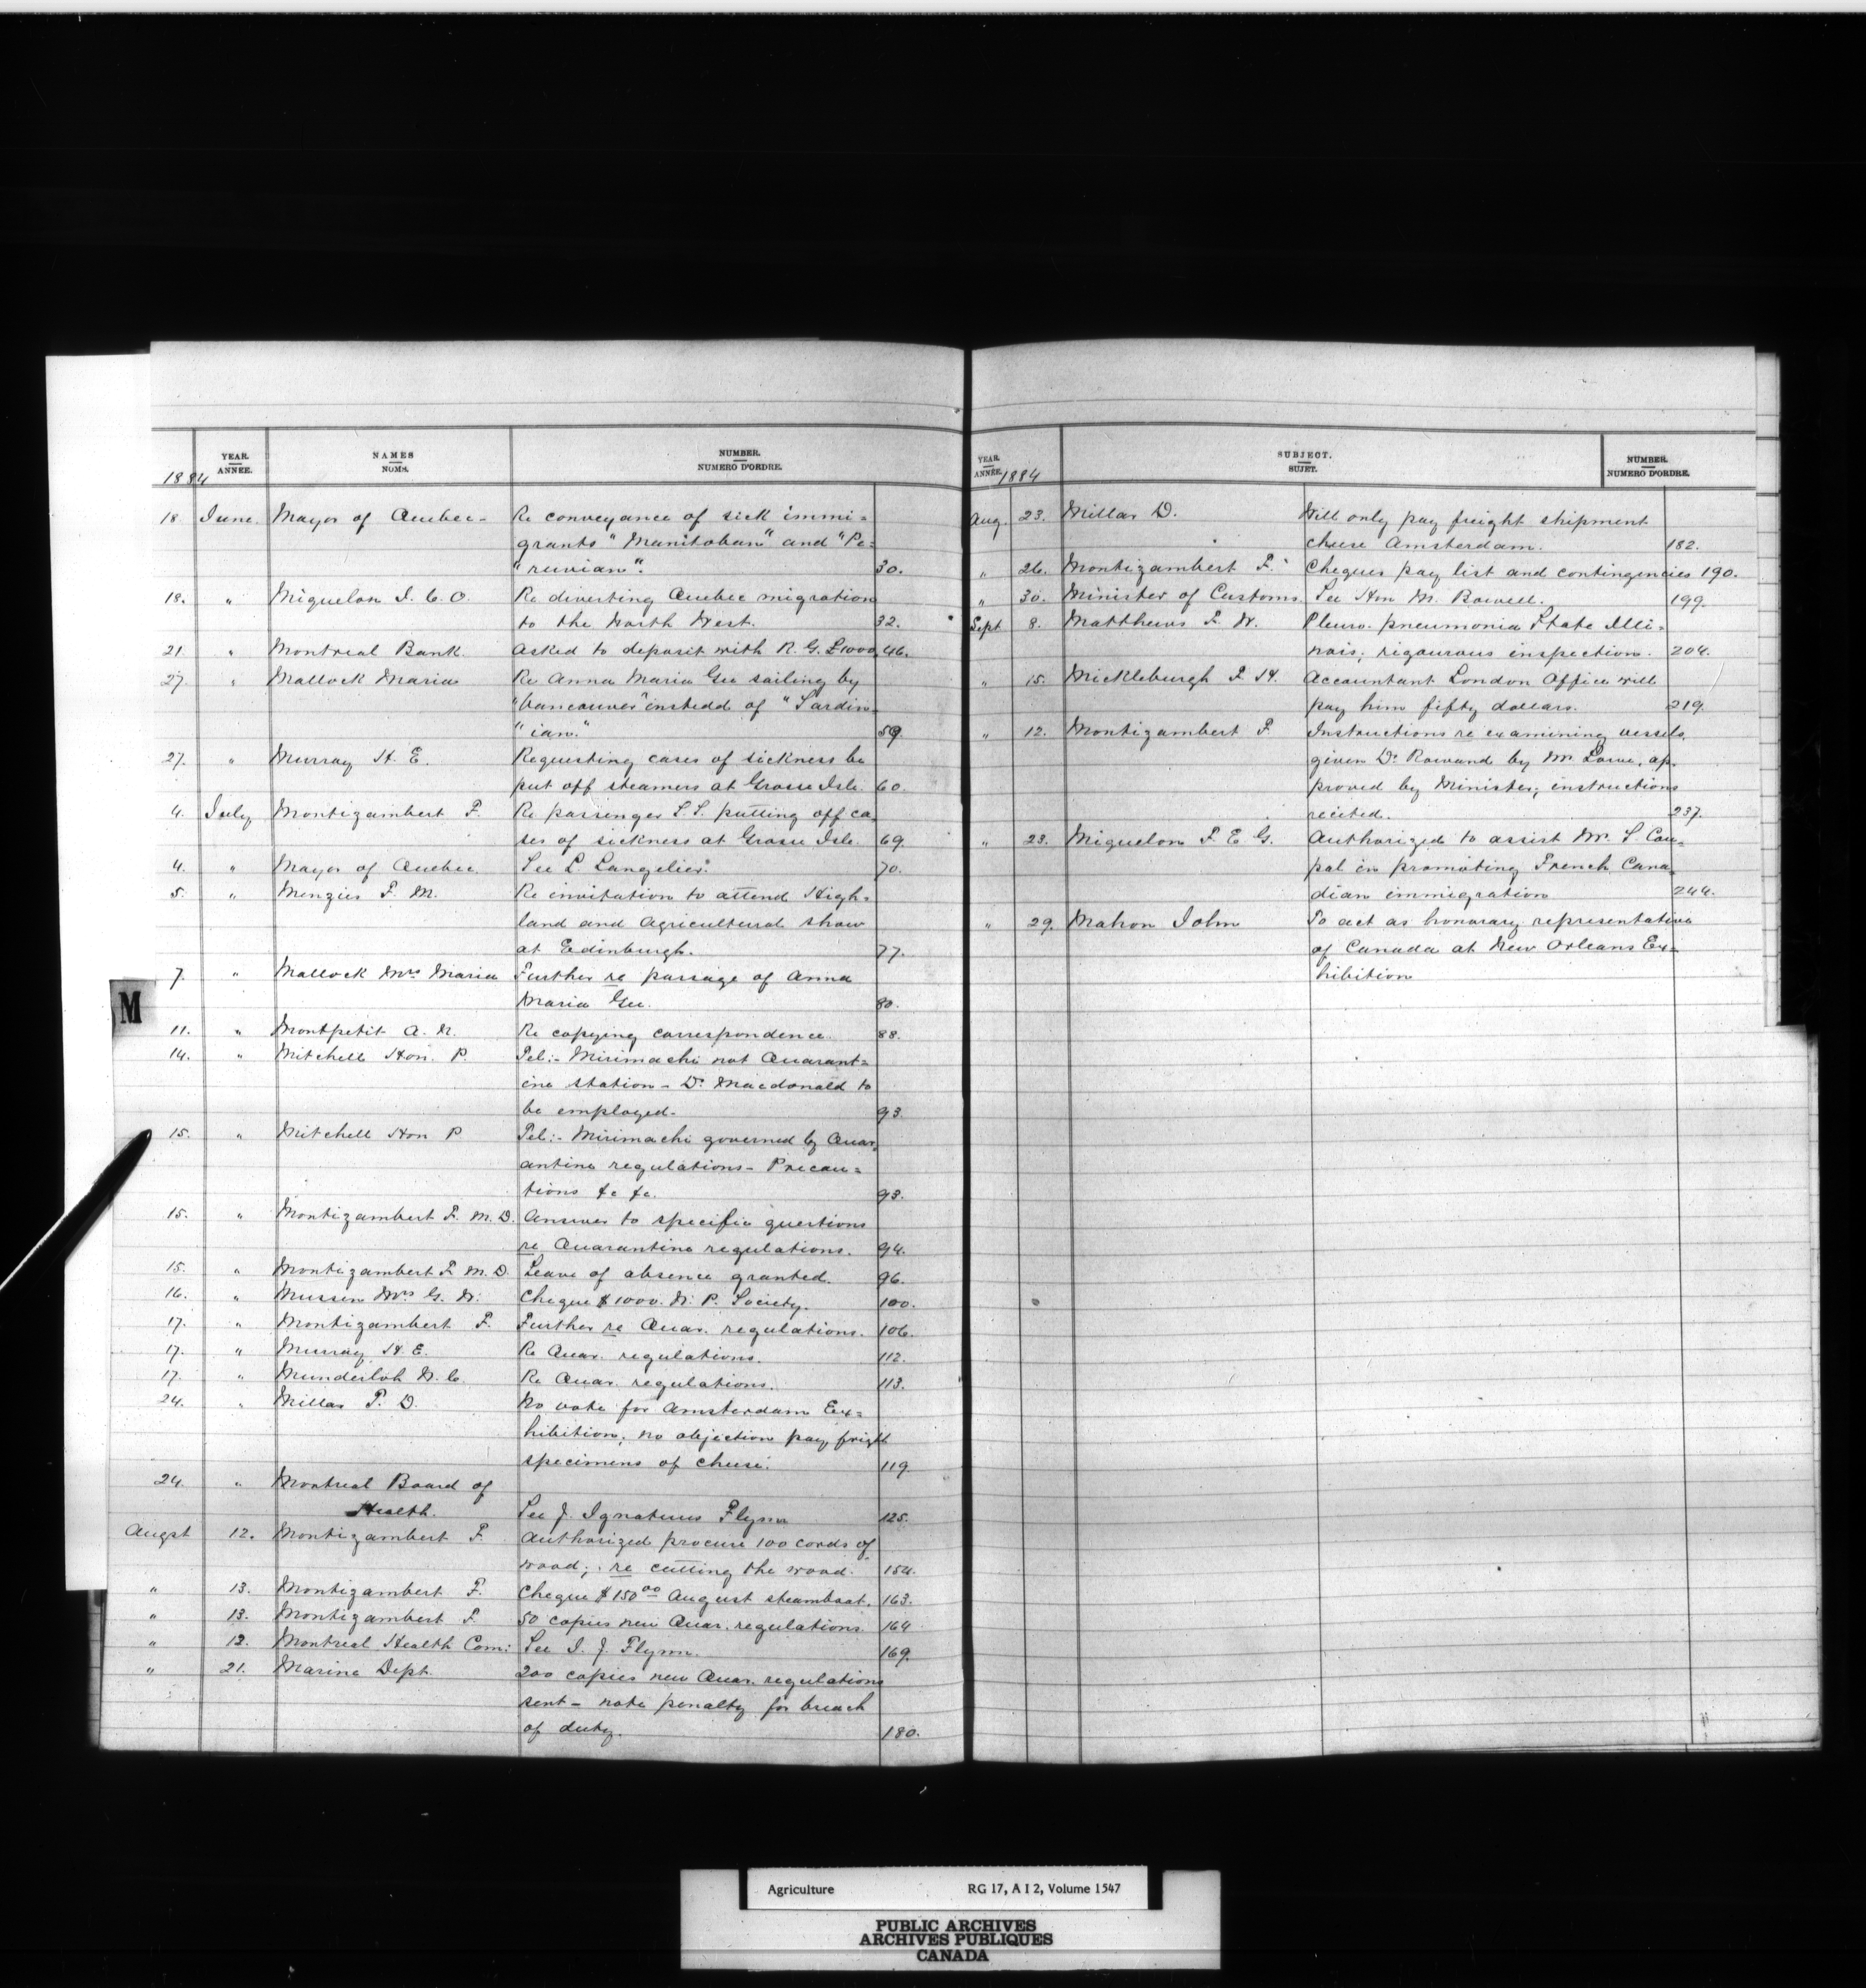 YEAR. ANNÉE. NAMES NOMS. NUMBER. NUMERO D'ORDRE.
1884
18. June. Mayor of Quebec - Re conveyance of sick immi=
grants "Manitoban" and "Pe=
"ruvian". 30.
18. " Miquelon J. C. O. Re diverting Quebec migration
to the North West. 32.
21 " Montreal Bank. Asked to deposit with R. G. £1000. 46.
27. " Mallock Maria Re Anna Maria Gee sailing by
"Vancouver" instedd of "Sardin=
"ian." 59.
27. " Murray H. E. Requesting cases of sickness be
put off steamers at Grosse Isle. 60.
4. July Montizambert F. Re passenger S.S. putting off ca
ses of sickness at Grosse Isle. 69.
4. " Mayor of Quebec. See L. Langelier. 70.
5. " Menzies F. M. Re invitation to attend High=
land and Agricultural show
at Edinburgh. 77.
7. " Mallock Mrs Maria Further re passage of Anna
Maria Gee. 80.
11. " Montpetit A. N. Re copying correspondence. 88.
14. " Mitchell Hon. P. Tel:- Mirimachi not Quarant=
ine station - Dr Macdonald to
be employed. 93.
15. " Mitchell Hon P Tel:- Mirimachi governed by Quar=
antine regulations - Precau=
tions &c &c. 93.
15. " Montizambert F. M. D. Answer to specific questions
re Quarantine regulations. 94.
15. " Montizambert F. M. D. Leave of absence granted. 96.
16. " Mussen Mrs G. W. Cheque $1000. W. P. Society. 100.
17. " Montizambert F. Further re Quar. regulations. 106.
17. " Murray H. E. Re Quar. regulations. 112.
17. " Munderloh W. C. Re Quar. regulations. 113.
24. " Millar T. D. No vote for Amsterdam Ex=
hibition; no objection pay freight
specimens of cheese. 119.
24. " Montreal Board of
Health. See J. Ignatius Flynn 125.
Augst 12. Montizambert F. Authorized procure 100 cords of
wood; re cutting the wood. 154.
" 13. Montizambert F. Cheque $150 00 August steamboat. 163.
" 13. Montizambert F. 50 copies new Quar. regulations. 164
" 13. Montreal Health Com: See I. J. Flynn. 169.
" 21. Marine Dept. 200 copies new Quar. regulations
sent - note penalty for breach
of duty. 180.
M
YEAR. ANNÉE. SUBJECT. SUJET. NUMBER. NUMERO D'ORDRE.
1884
Aug. 23. Millar D. Will only pay freight shipment
cheese Amsterdam. 182.
" 26. Montizambert F. Cheques pay list and contingencies 190.
" 30. Minister of Customs. See Hon M. Bowell. 199.
Sept 8. Matthews F. W. Pleuro-pneumonia State Illi=
nois; rigourous inspection. 204.
" 15. Mickleburgh F. H. Accountant London Office will
pay him fifty dollars. 219.
" 12. Montizambert F. Instructions re examining vessels,
given Dr Rowand by Mr Lowe, ap=
proved by Minister; instructions
recited. 237.
" 23. Miquelon F. E G. Authorized to assist Mr. S. Cou=
pal in promoting French Cana=
dian immigration 244.
" 29. Mahon John To act as honorary representative
of Canada at New Orleans Ex=
hibition
Agriculture RG 17, A I 2, Volume 1547
PUBLIC ARCHIVES
ARCHIVES PUBLIQUES
CANADA